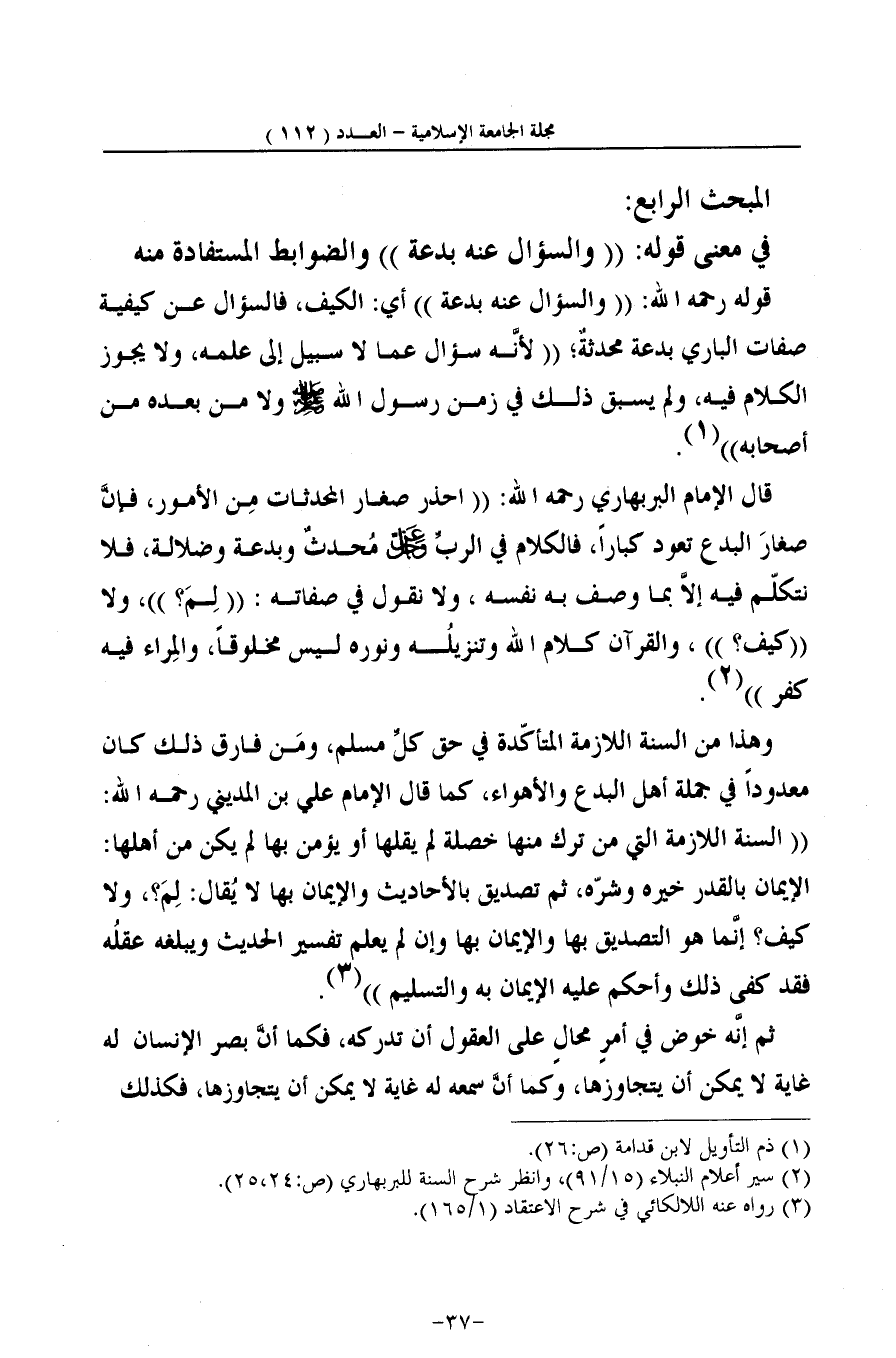 مجلة الجامعة الإسلامية – العـــدد ( ١١٢ )
المبحث الرابع:
في معنى قوله: (( والسؤال عنه بدعة )) والضوابط المستفادة منه
قوله رحمه الله: (( والسؤال عنه بدعة )) أي: الكيف، فالسؤال عن كيفية
صفات الباري بدعة محدثةٌ؛ (( لأنَّه سؤال عما لا سبيل إلى علمه، ولا يجوز
الكلام فيه، ولم يسبق ذلك في زمن رسول الله ﷺ ولا من بعده من
أصحابه))(١).
قال الإمام البربهاري رحمه الله: (( احذر صغار المحدثات مِن الأمور، فإنَّ
صغارَ البدع تعود كباراً، فالكلام في الربِّ عزوجل مُحدثٌ وبدعة وضلالة، فلا
نتكلّم فيه إلاَّ بما وصف به نفسه ، ولا نقول في صفاته : (( لِمَ؟ ))، ولا
((كيف؟ )) ، والقرآن كلام الله وتنزيلُه ونوره ليس مخلوقاً، والمِراء فيه
كفر ))(٢).
وهذا من السنة اللازمة المتأكّدة في حق كلِّ مسلم، ومَن فارق ذلك كان
معدوداً في جملة أهل البدع والأهواء، كما قال الإمام علي بن المديني رحمه الله:
(( السنة اللازمة التي من ترك منها خصلة لم يقلها أو يؤمن بها لم يكن من أهلها:
الإيمان بالقدر خيره وشرّه، ثم تصديق بالأحاديث والإيمان بها لا يُقال: لِمَ؟، ولا
كيف؟ إنَّما هو التصديق بها والإيمان بها وإن لم يعلم تفسير الحديث ويبلغه عقلُه
فقد كفى ذلك وأحكم عليه الإيمان به والتسليم ))(٣).
ثم إنَّه خوض في أمرٍ محالٍ على العقول أن تدركه، فكما أنَّ بصر الإنسان له
غاية لا يمكن أن يتجاوزها، وكما أنَّ سمعه له غاية لا يمكن أن يتجاوزها، فكذلك
(١) ذم التأويل لابن قدامة (ص:٢٦).
(٢) سير أعلام النبلاء (٩١/١٥)، وانظر شرح السنة للبربهاري (ص:٢٥،٢٤).
(٣) رواه عنه اللالكائي في شرح الاعتقاد (١٦٥/١).
-٣٧-